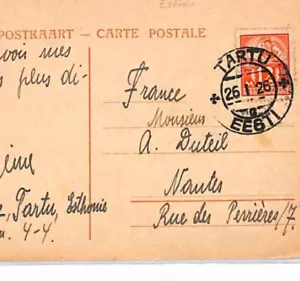 POSTKAART - CARTE POSTALE
vois mes
plus di-
TARTU
26 1 26
EESTI
France
Monsieur
A. Duteil
Nantes
Rue des Perrières/7.
Tartu, Esthonie
4-4.